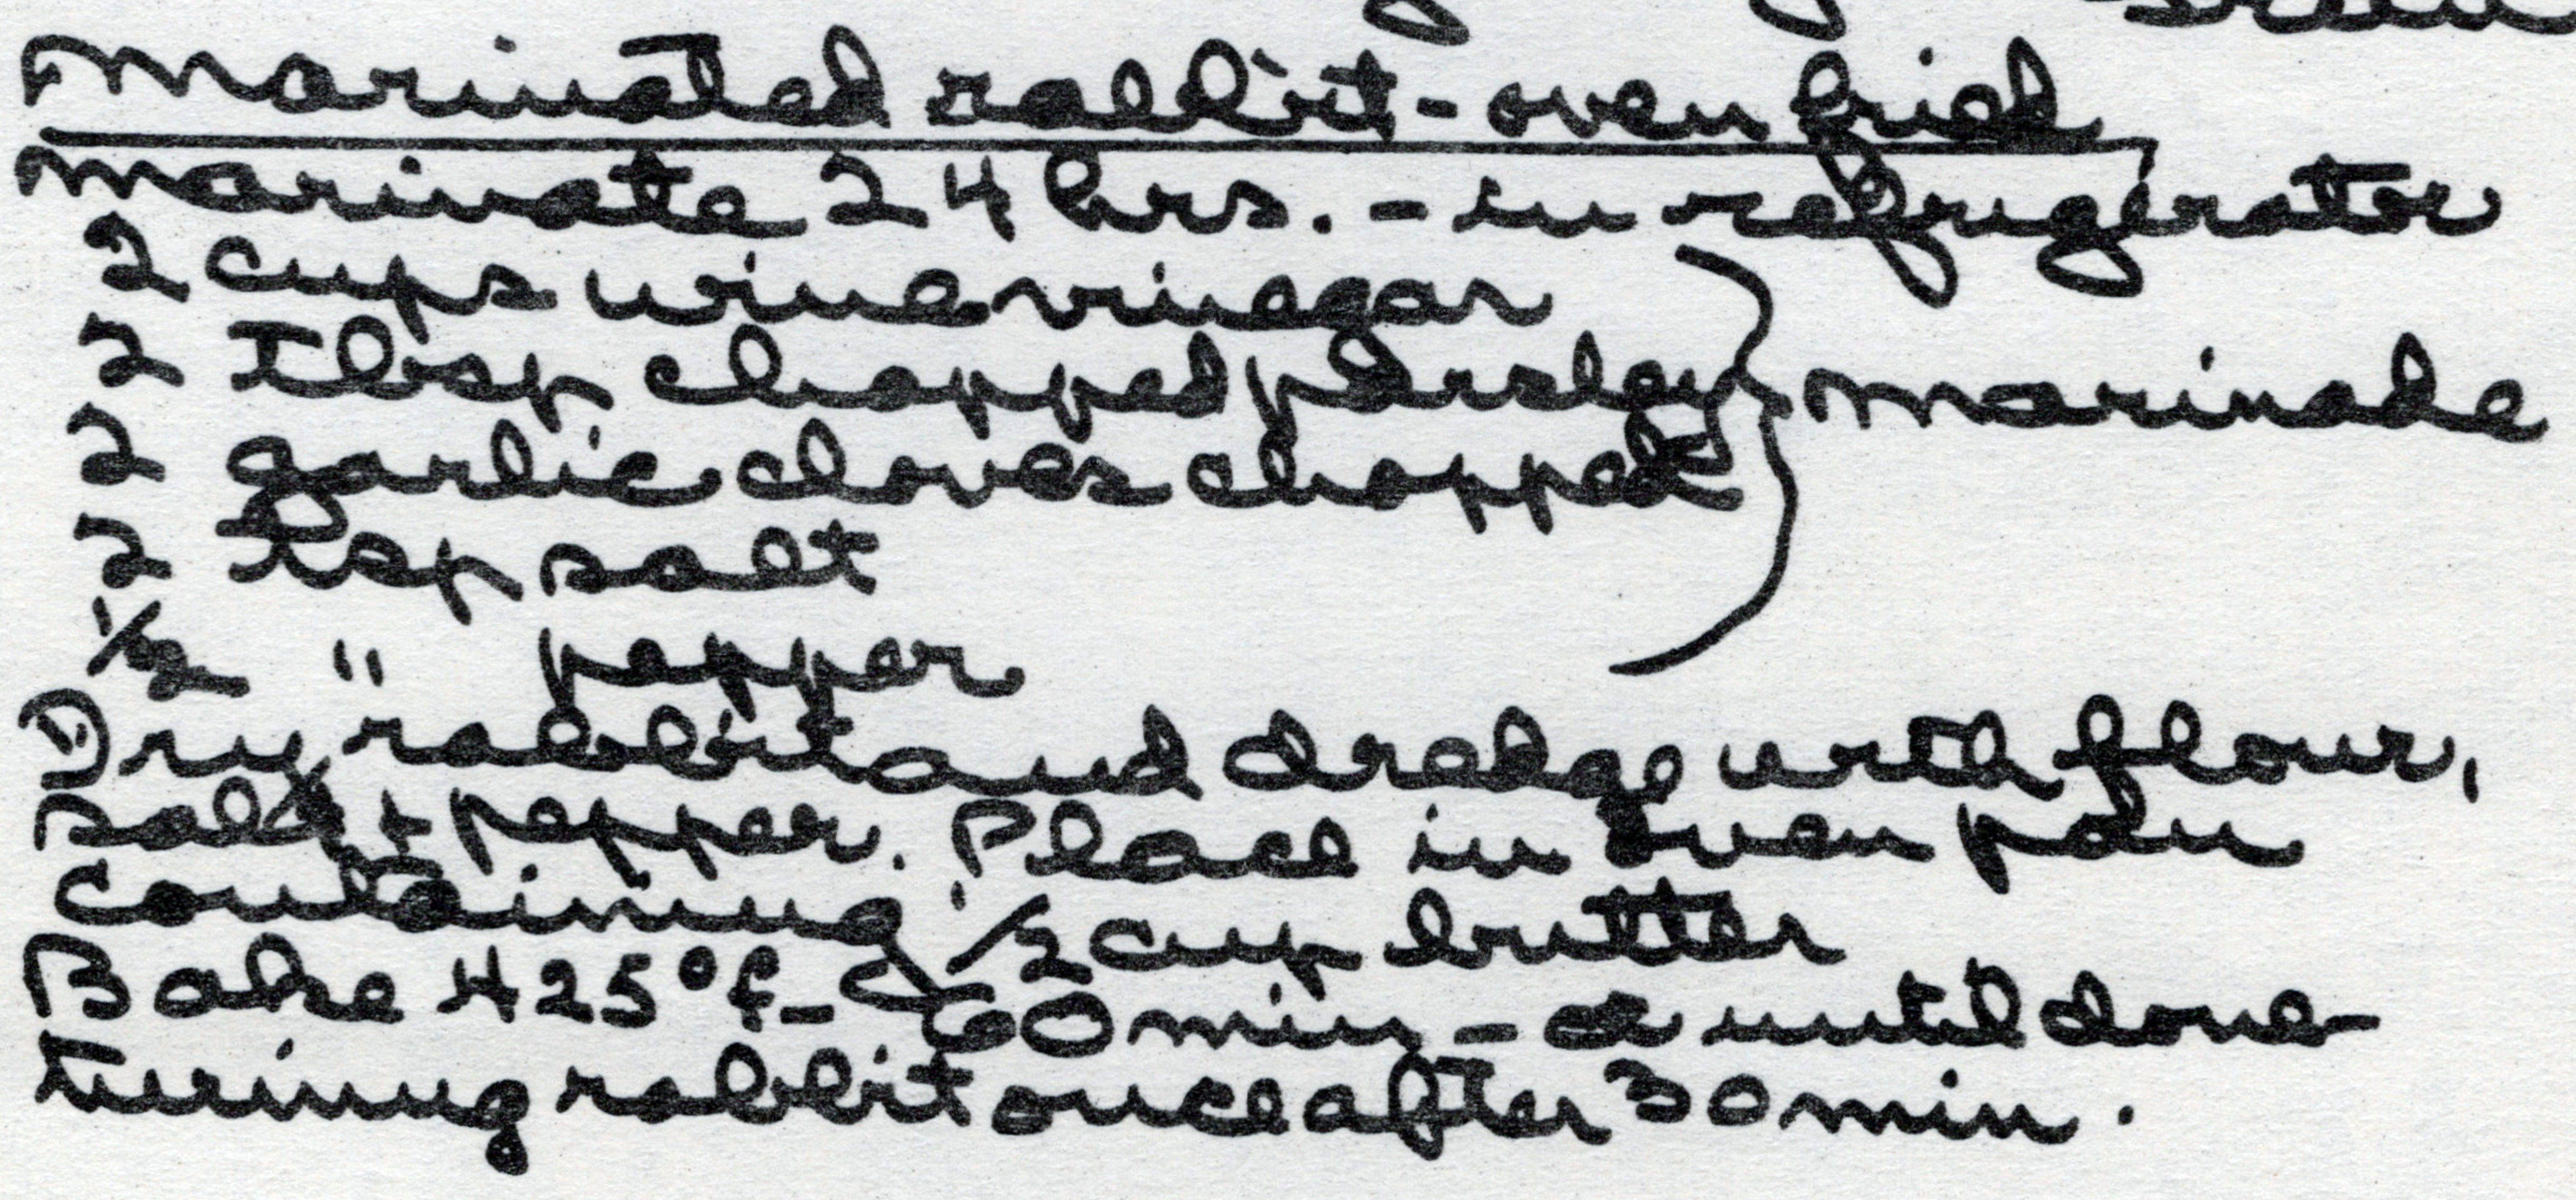 Marinated rabbit - oven fried
marinate 24 hrs. - in refrigerator
2 cups wine vinegar
2 Tbsp chopped parsley
2 garlic cloves chopped
marinade
2 tsp salt
1/2 " pepper
Dry rabbit and dredge with flour,
salt + pepper. Place in oven pan
containing 1/2 cup butter
Bake 425°f - 60 min - or until done
turning rabbit once after 30 min.